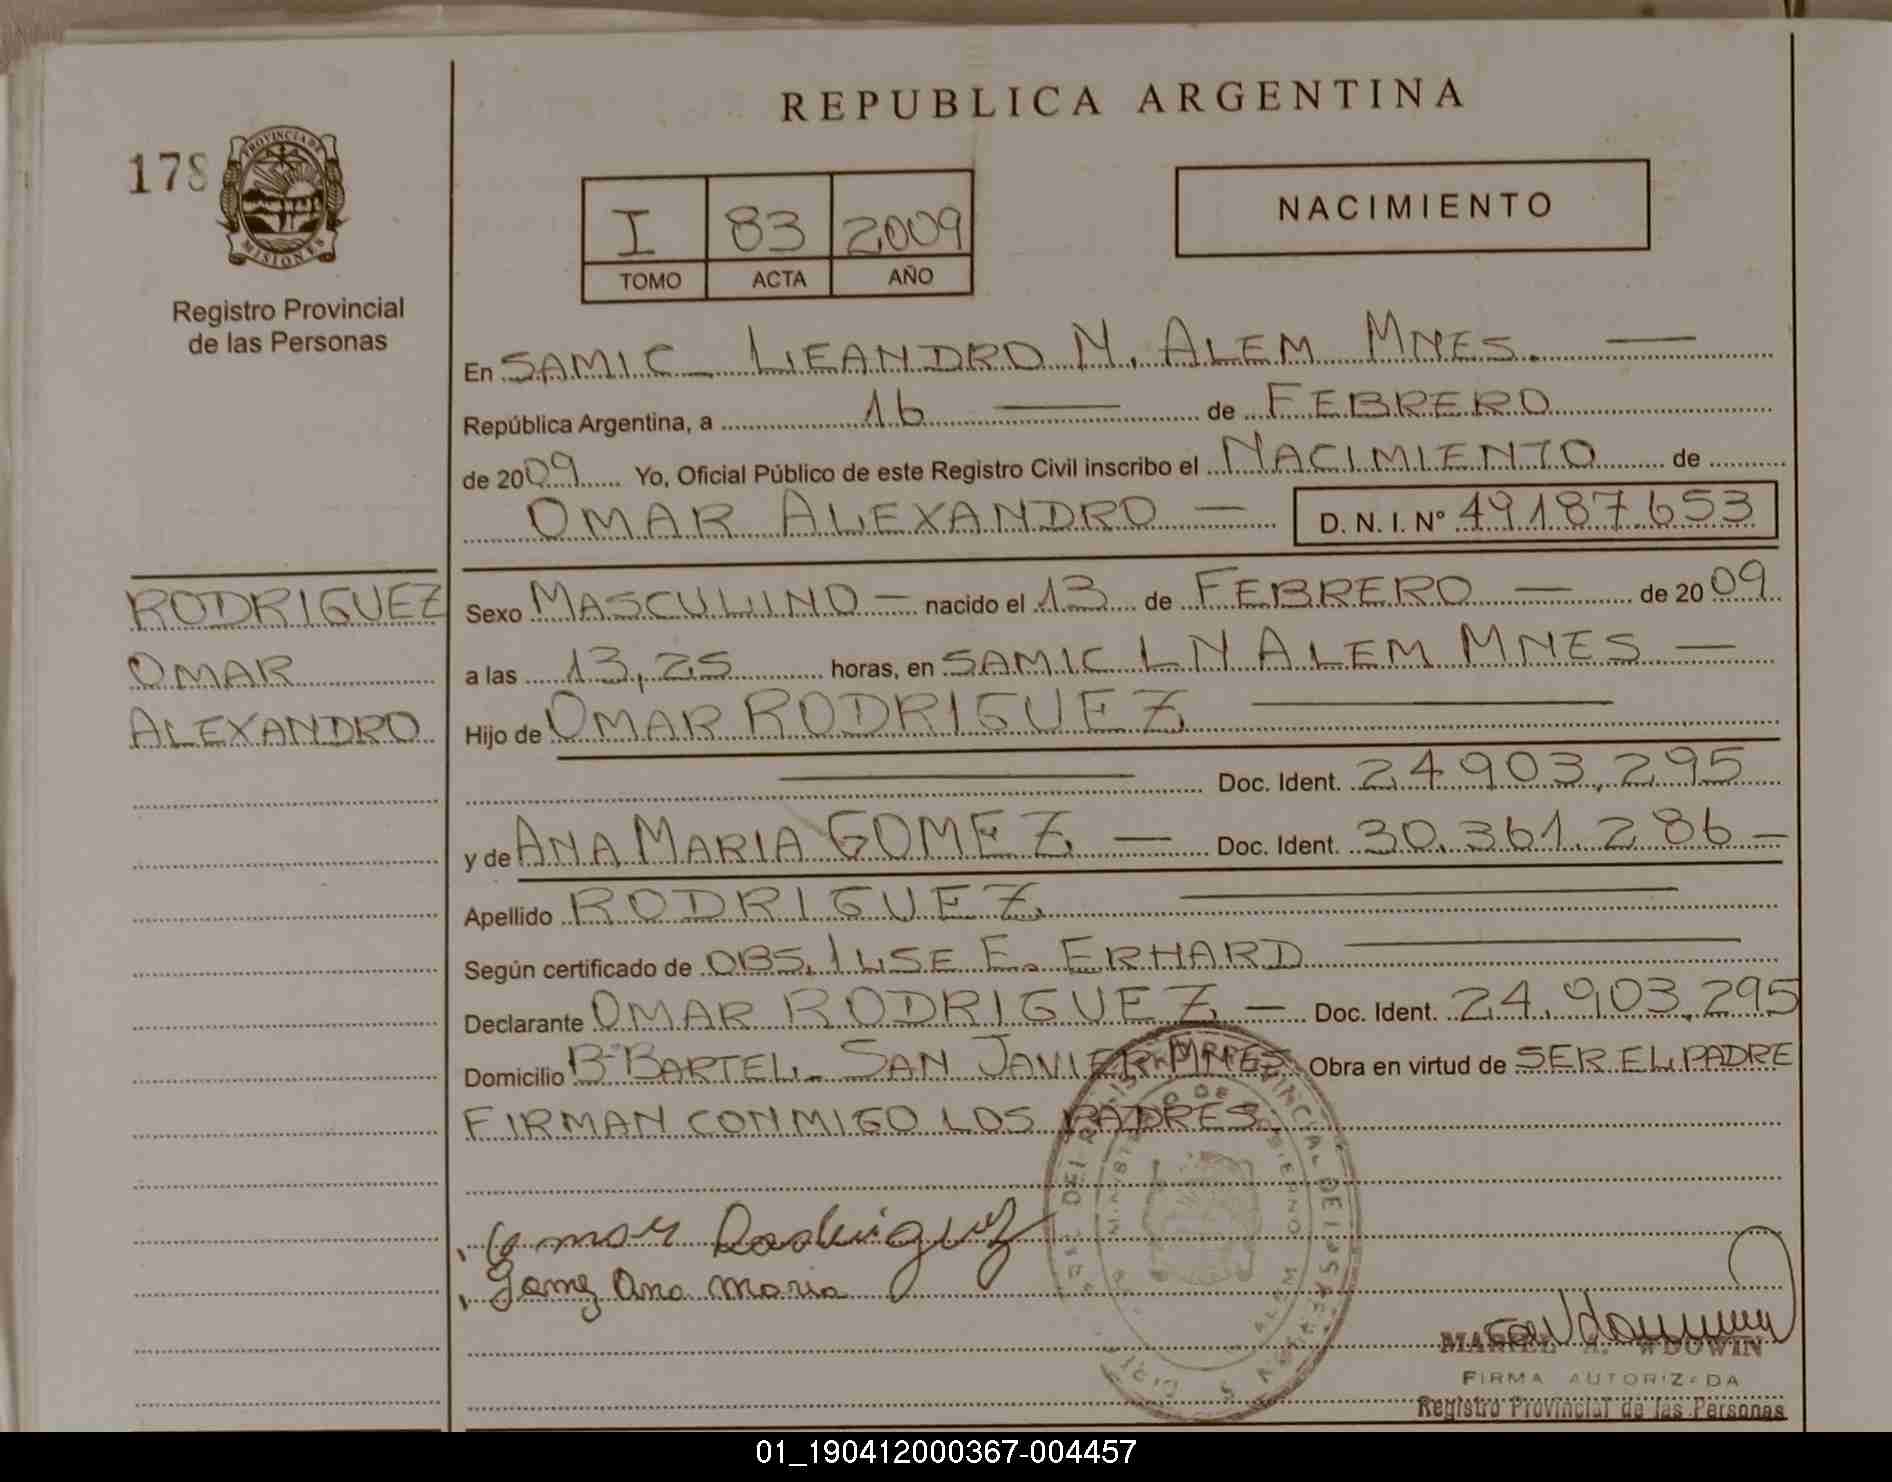 REPUBLICA ARGENTINA
178
PROVINCIA DE
MISIONES
Registro Provincial
de las Personas
I 83 2009
TOMO ACTA AÑO
NACIMIENTO
En SAMIC LEANDRO N. ALEM MNES.
República Argentina, a 16 de FEBRERO
de 2009 Yo, Oficial Público de este Registro Civil inscribo el NACIMIENTO de
OMAR ALEXANDRO D. N. I. Nº 49187.653
RODRIGUEZ
OMAR
ALEXANDRO
Sexo MASCULINO nacido el 13 de FEBRERO de 2009
a las 13,25 horas, en SAMIC L N ALEM MNES
Hijo de OMAR RODRIGUEZ
Doc. Ident. 24903.295
y de ANA MARIA GOMEZ Doc. Ident. 30.361.286
Apellido RODRIGUEZ
Según certificado de OBS. ILSE E. ERHARD
Declarante OMAR RODRIGUEZ Doc. Ident. 24.903.295
Domicilio Bº BARTEL - SAN JAVIER MNES Obra en virtud de SER EL PADRE
FIRMAN CONMIGO LOS PADRES.
Omar Rodriguez
Gomez Ana Maria
A. WDOWIN
FIRMA AUTORIZADA
Registro Provincial de las Personas
01_190412000367-004457